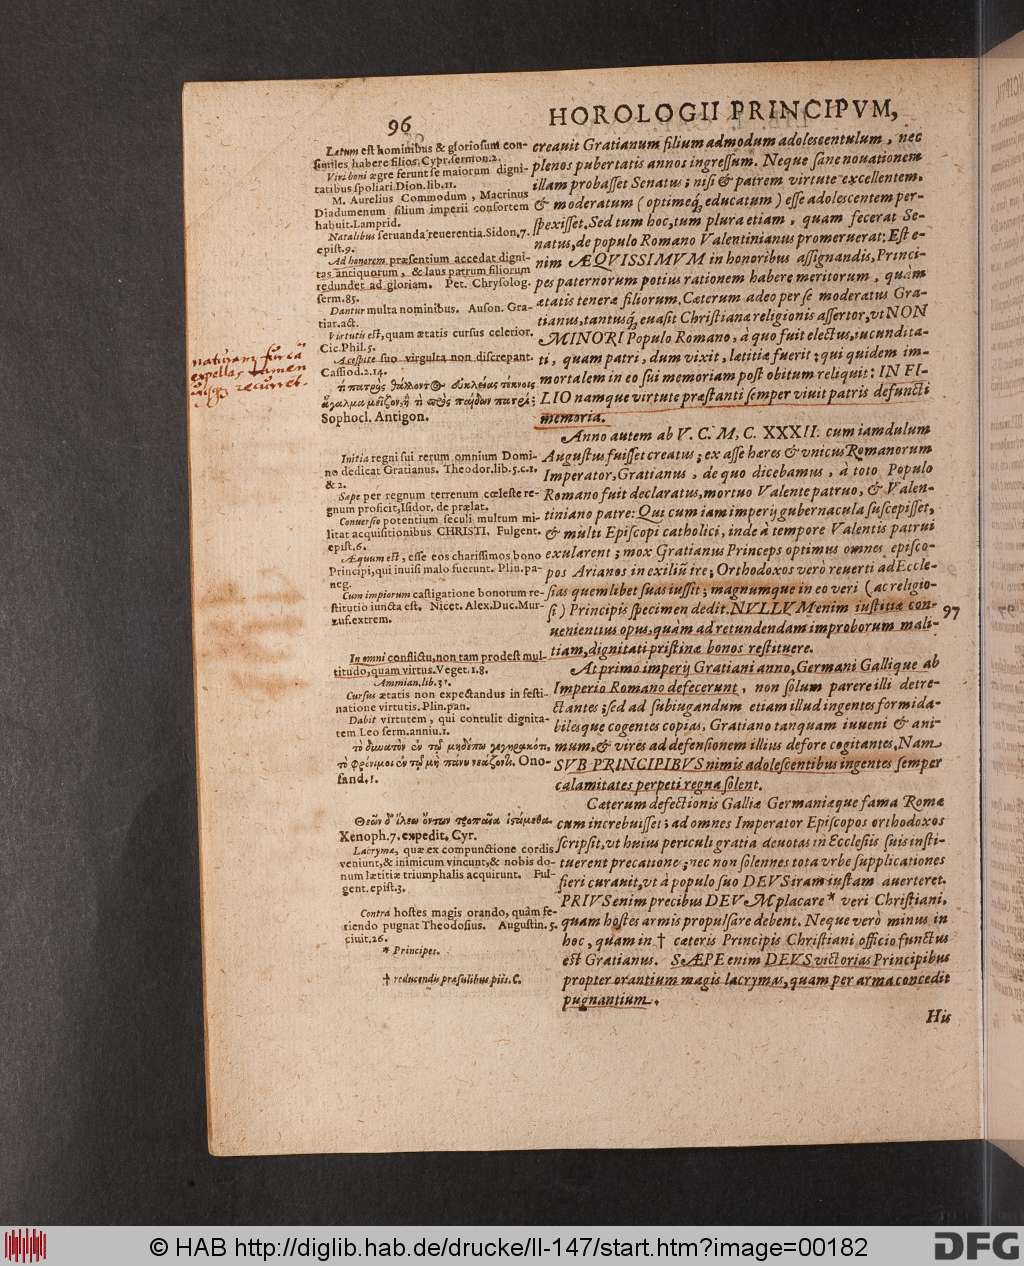 96
HOROLOGII PRINCIPVM,
Lætum est hominibus & gloriosum con-
similes habere filios. Cypr. sermon. 2.
Viri boni ægre ferunt se maiorum digni-
tatibus spoliari. Dion. lib. 11.
M. Aurelius Commodum, Macrinus
Diadumenum filium imperii consortem
habuit. Lamprid.
Natalibus seruanda reuerentia. Sidon. 7.
epist. 9.
Ad honorem præsentium accedat digni-
tas antiquorum, & laus patrum filiorum
redundet ad gloriam. Pet. Chrysolog.
serm. 85.
Dantur multa nominibus. Auson. Gra-
tiar. act.
Virtutis est, quam ætatis cursus celerior.
Cic. Phil. 5.
A cespite suo virgulta non discrepant.
Cassiod. 2. 14.
τί πατρὸς θάλλοντος εὐκλείας τέκνοις
ἄγαλμα μεῖζον, ἢ τί πρὸς παίδων πατρί;
Sophocl. Antigon.
naturam furcâ
expellas tamen
usq; recurret.
Initia regni sui rerum omnium Domi-
no dedicat Gratianus. Theodor. lib. 5. c. 1.
& 2.
Sæpe per regnum terrenum cœleste re-
gnum proficit, Isidor. de prælat.
Conuersio potentium seculi multum mi-
litat acquisitionibus CHRISTI. Fulgent.
epist. 6.
Æquum est, esse eos charissimos bono
Principi, qui inuisi malo fuerunt. Plin. pa-
neg.
Cum impiorum castigatione bonorum re-
stitutio iuncta est, Nicet. Alex. Duc. Mur-
zuf. extrem.
In omni conflictu, non tam prodest mul-
titudo, quam virtus. Veget. 1. 8.
Ammian. lib. 31.
Cursus ætatis non expectandus in festi-
natione virtutis. Plin. pan.
Dabit virtutem, qui contulit dignita-
tem Leo serm. anniu. 1.
τὸ δυνατὸν ἐν τῷ μηδέπω γεγηρακότι,
τὸ φρόνιμον ἐν τῷ μὴ πάνυ νεάζοντι. Ono-
sand. 1.
Θεῶν δ' ἵλεω ὄντων τροπαῖα ἱστάμεθα.
Xenoph. 7. expedit. Cyr.
Lacrymæ, quæ ex compunctione cordis
veniunt, & inimicum vincunt, & nobis do-
num lætitiæ triumphalis acquirunt. Ful-
gent. epist. 3.
Contra hostes magis orando, quàm fe-
riendo pugnat Theodosius. Augustin. 5.
ciuit. 26.
* Principes.
† reducendis præsulibus piis. C.
creauit Gratianum filium admodum adolescentulum, nec
plenos pubertatis annos ingressum. Neque sane nouationem
illam probasset Senatus; nisi & patrem virtute excellentem,
& moderatum (optimeq; educatum) esse adolescentem per-
spexisset. Sed tum hoc, tum plura etiam, quam fecerat Se-
natus, de populo Romano Valentinianus promeruerat: Est e-
nim ÆQVISSIMVM in honoribus assignandis, Princi-
pes paternorum potius rationem habere meritorum, quàm
ætatis teneræ filiorum. Cæterum adeo per se moderatus Gra-
tianus, tantusq; euasit Christianæ religionis assertor, vt NON
MINORI Populo Romano, à quo fuit electus, iucundita-
ti, quam patri, dum vixit, lætitiæ fuerit; qui quidem im-
mortalem in eo sui memoriam post obitum reliquit: IN FI-
LIO namque virtute præstanti semper viuit patris defuncti
memoria.
Anno autem ab V. C. M, C. XXXII. cum iamdulum
Augustus fuisset creatus; ex asse hæres & vnicus Romanorum
Imperator, Gratianus, de quo dicebamus, à toto Populo
Romano fuit declaratus, mortuo Valente patruo, & Valen-
tiniano patre: Qui cum iam imperij gubernacula suscepisset,
& multi Episcopi catholici, inde à tempore Valentis patrui
exularent; mox Gratianus Princeps optimus omnes episco-
pos Arianos in exiliũ ire; Orthodoxos verò reuerti ad Eccle-
sias quemlibet suas iussit; magnumque in eo veri (ac religio-
si) Principis specimen dedit. NVLLVM enim iustitiæ con-
uenientius opus, quàm ad retundendam improborum mali-
tiam, dignitati pristinæ bonos restituere.
97
At primo imperij Gratiani anno, Germani Gallique ab
Imperio Romano defecerunt, non solum parere illi detre-
ctantes; sed ad subiugandum etiam illud ingentes formida-
bilesque cogentes copias, Gratiano tanquam iuueni & ani-
mum, & vires ad defensionem illius defore cogitantes. Nam
SVB PRINCIPIBVS nimis adolescentibus ingentes semper
calamitates perpeti regna solent.
Cæterum defectionis Galliæ Germaniæque fama Romæ
cum increbuisset; ad omnes Imperator Episcopos orthodoxos
scripsit, vt huius periculi gratia deuotas in Ecclesiis suis insti-
tuerent precatione; nec non solennes tota vrbe supplicationes
fieri curauit, vt à populo suo DEVS iram iustam auerteret.
PRIVS enim precibus DEVM placare * veri Christiani,
quam hostes armis propulsare debent. Neque verò minus in
hoc, quam in † cæteris Principis Christiani officio functus
est Gratianus. SÆPE enim DEVS victorias Principibus
propter orantium magis lacrymas, quam per arma concedit
pugnantium.
His
© HAB http://diglib.hab.de/drucke/ll-147/start.htm?image=00182
DFG